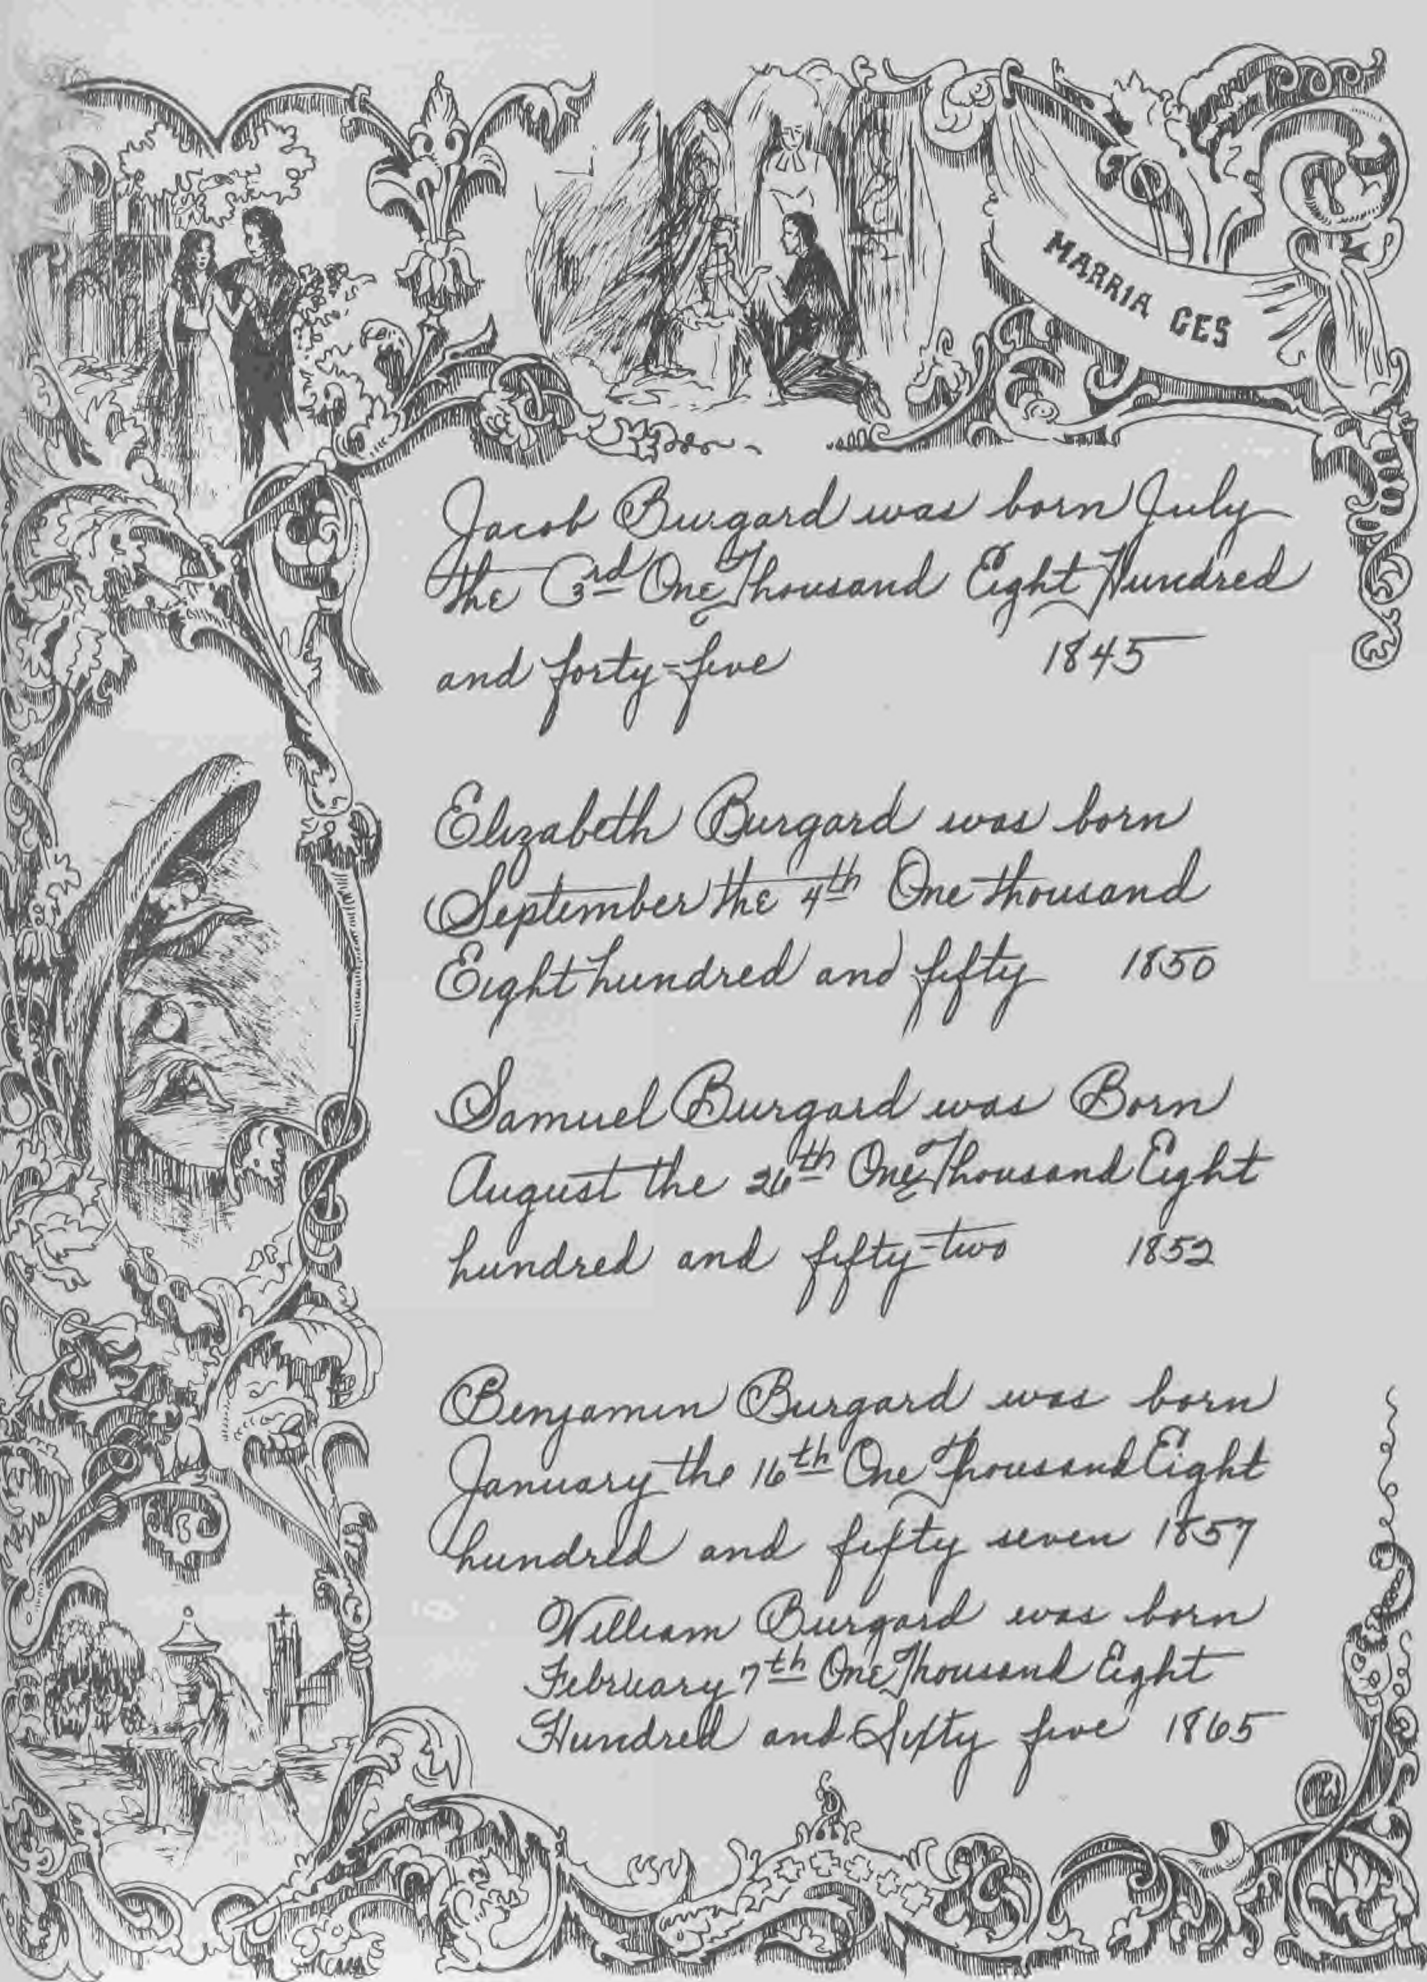 MARRIA GES
Jacob Burgard was born July
the 3rd One Thousand Eight Hundred
and forty-five 1845
Elizabeth Burgard was born
September the 4th One thousand
Eight hundred and fifty 1850
Samuel Burgard was Born
August the 26th One Thousand Eight
hundred and fifty-two 1852
Benjamin Burgard was born
January the 16th One Thousand Eight
hundred and fifty seven 1857
William Burgard was born
February 7th One Thousand Eight
Hundred and Sixty five 1865